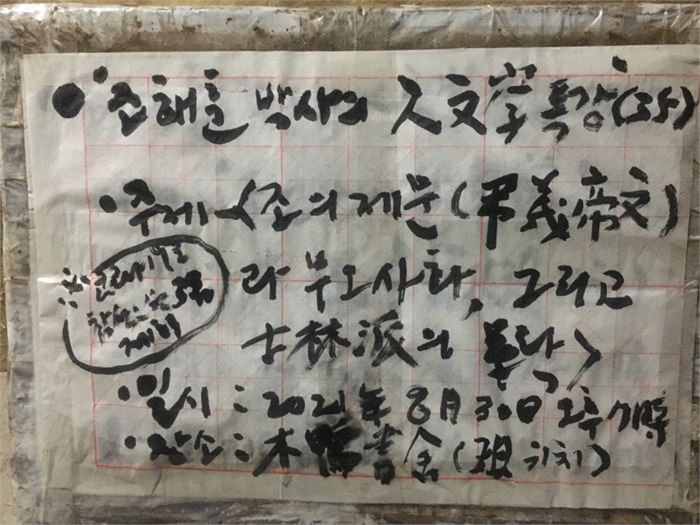 • 조해훈 박사의 人文学 특강(35)
• 주제 <조의제문(弔義帝文)
과 무오사화, 그리고
士林派의 몰락>
※ 코로나19로
참석인원 3명
제한
• 일시 : 2021年 8月 30日 오후 7時
• 장소 : 木鴨書舍(現 위치)